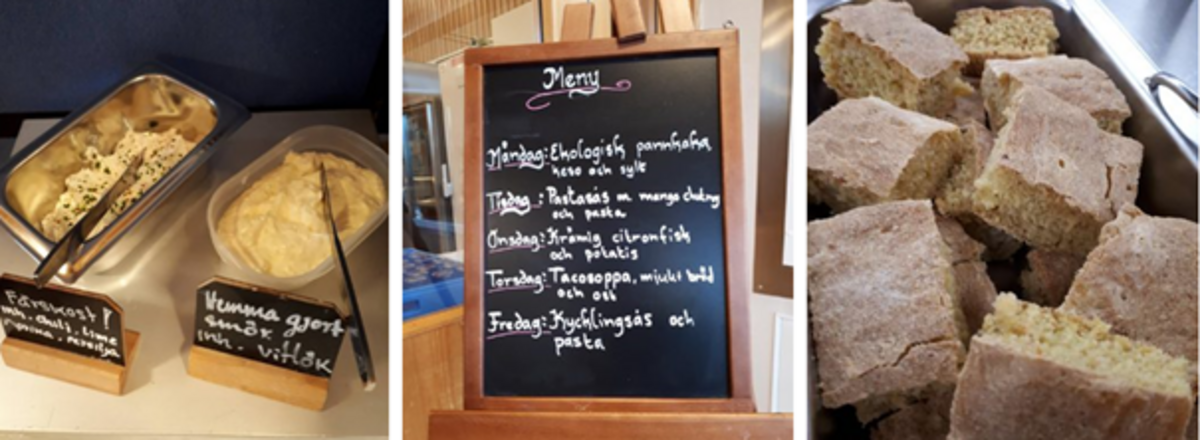 Färskost!
inh. chili, lime
paprika, persilja
Hemma gjort
smör
inh. vitlök
Meny
Måndag: Ekologisk pannkaka,
keso och sylt
Tisdag: Pastasås m. mango chutney
och pasta
Onsdag: Krämig citronfisk
och potatis
Torsdag: Tacosoppa, mjukt bröd
och ost
Fredag: Kycklingsås och
pasta